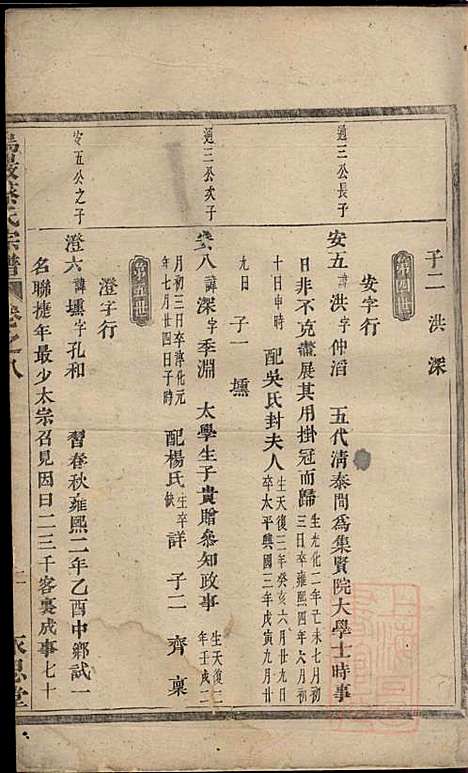 子二 洪 深
第四世
安字行
通三公長子
安五 諱洪 字仲滔 五代清泰間爲集賢院大學士時事
日非不克盡展其用掛冠而歸 生光化二年己未七月初
三日卒雍熙四年六月初
十日申時 配吳氏封夫人 生天復三年癸亥六月廿九日
卒太平興國三年戊寅九月廿
九日 子一 壎
通三公次子
安八 諱深 字季淵 太學生子貴贈參知政事 生天復二
年壬戌二
月初三日卒淳化元
年七月廿四日子時 配楊氏 生卒
缺 詳 子二 齊 稟
第五世
澄字行
安五公之子
澄六 諱壎 字孔和 習春秋雍熙二年乙酉中鄉試一
名聯捷年最少太宗召見因曰二三千客裏成事七十
蔡氏宗譜 卷之八